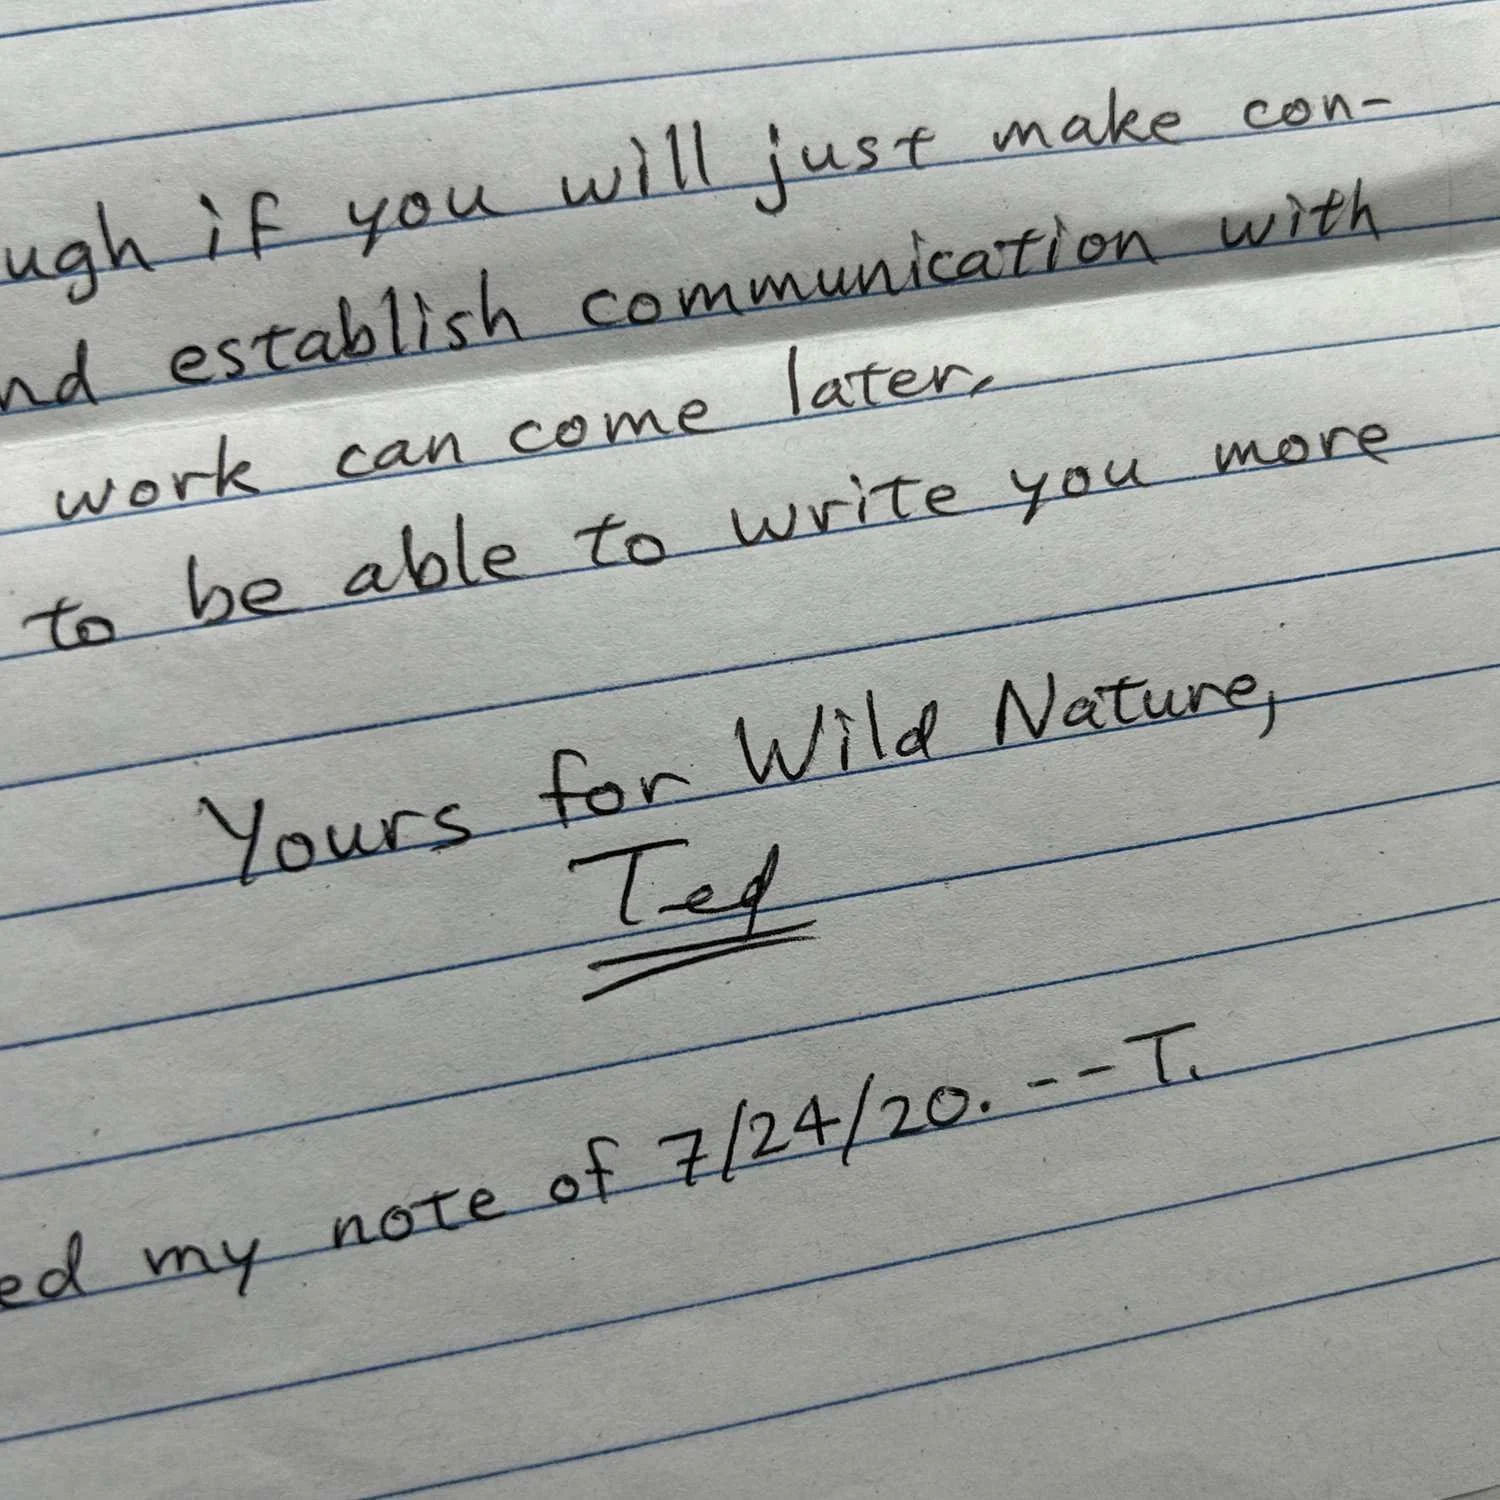 ugh if you will just make con-
nd establish communication with
work can come later.
to be able to write you more
Yours for Wild Nature,
Ted
ed my note of 7/24/20. --T.